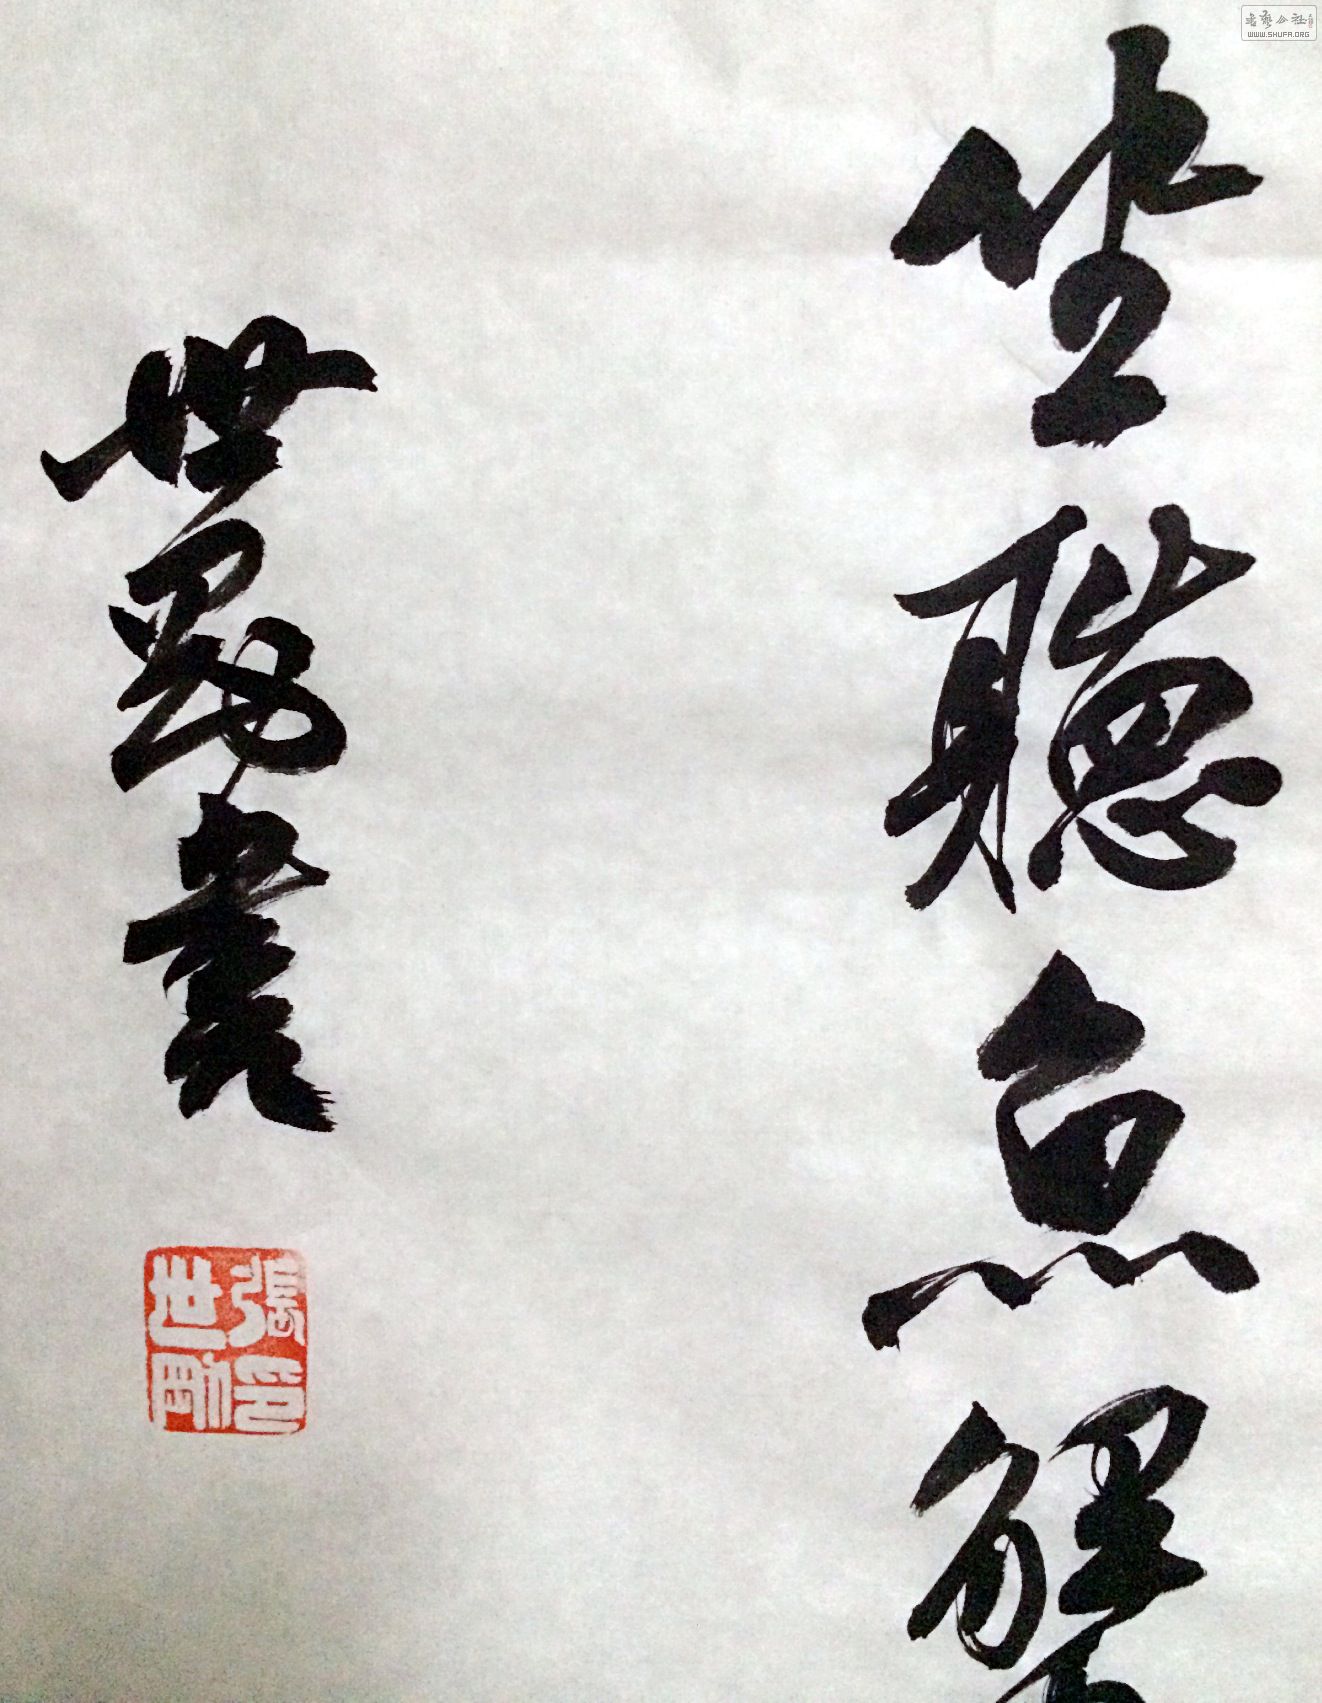 坐聽魚解
世剛書
張世剛印
書藝公社
WWW.SHUFA.ORG